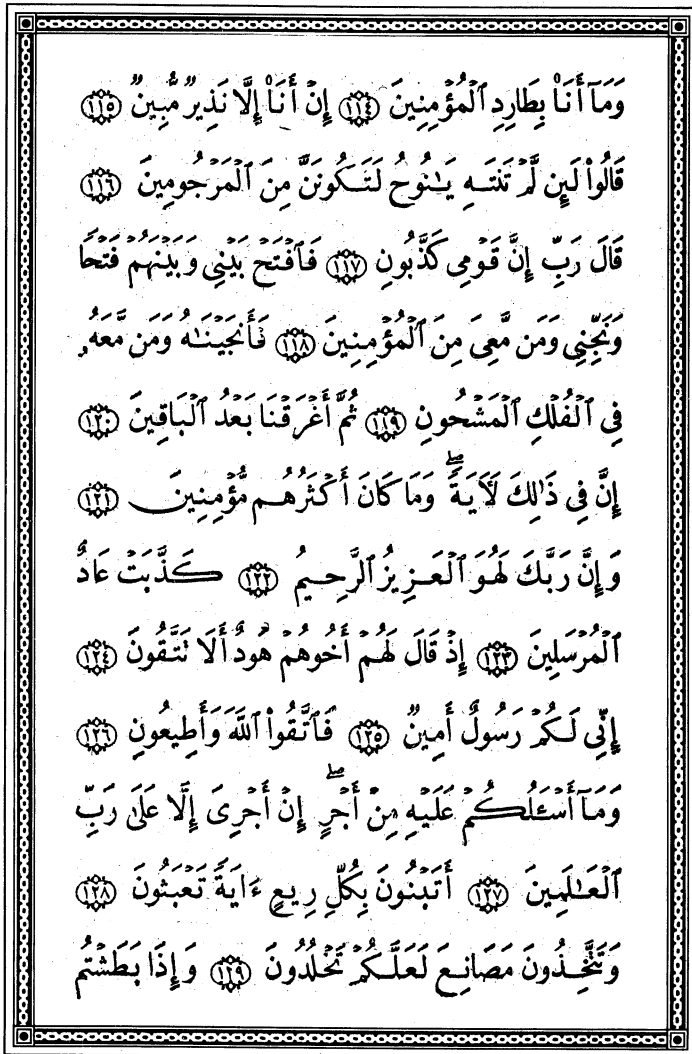 وَمَآ أَنَا۠ بِطَارِدِ ٱلْمُؤْمِنِينَ ١١٤ إِنْ أَنَا۠ إِلَّا نَذِيرٌ مُّبِينٌ ١١٥
قَالُوا۟ لَئِن لَّمْ تَنتَهِ يَـٰنُوحُ لَتَكُونَنَّ مِنَ ٱلْمَرْجُومِينَ ١١٦
قَالَ رَبِّ إِنَّ قَوْمِى كَذَّبُونِ ١١٧ فَٱفْتَحْ بَيْنِى وَبَيْنَهُمْ فَتْحًا
وَنَجِّنِى وَمَن مَّعِىَ مِنَ ٱلْمُؤْمِنِينَ ١١٨ فَأَنجَيْنَـٰهُ وَمَن مَّعَهُۥ
فِى ٱلْفُلْكِ ٱلْمَشْحُونِ ١١٩ ثُمَّ أَغْرَقْنَا بَعْدُ ٱلْبَاقِينَ ١٢٠
إِنَّ فِى ذَٰلِكَ لَـَٔايَةً ۖ وَمَا كَانَ أَكْثَرُهُم مُّؤْمِنِينَ ١٢١
وَإِنَّ رَبَّكَ لَهُوَ ٱلْعَزِيزُ ٱلرَّحِيمُ ١٢٢ كَذَّبَتْ عَادٌ
ٱلْمُرْسَلِينَ ١٢٣ إِذْ قَالَ لَهُمْ أَخُوهُمْ هُودٌ أَلَا تَتَّقُونَ ١٢٤
إِنِّى لَكُمْ رَسُولٌ أَمِينٌ ١٢٥ فَٱتَّقُوا۟ ٱللَّهَ وَأَطِيعُونِ ١٢٦
وَمَآ أَسْـَٔلُكُمْ عَلَيْهِ مِنْ أَجْرٍ ۖ إِنْ أَجْرِىَ إِلَّا عَلَىٰ رَبِّ
ٱلْعَـٰلَمِينَ ١٢٧ أَتَبْنُونَ بِكُلِّ رِيعٍ ءَايَةً تَعْبَثُونَ ١٢٨
وَتَتَّخِذُونَ مَصَانِعَ لَعَلَّكُمْ تَخْلُدُونَ ١٢٩ وَإِذَا بَطَشْتُم